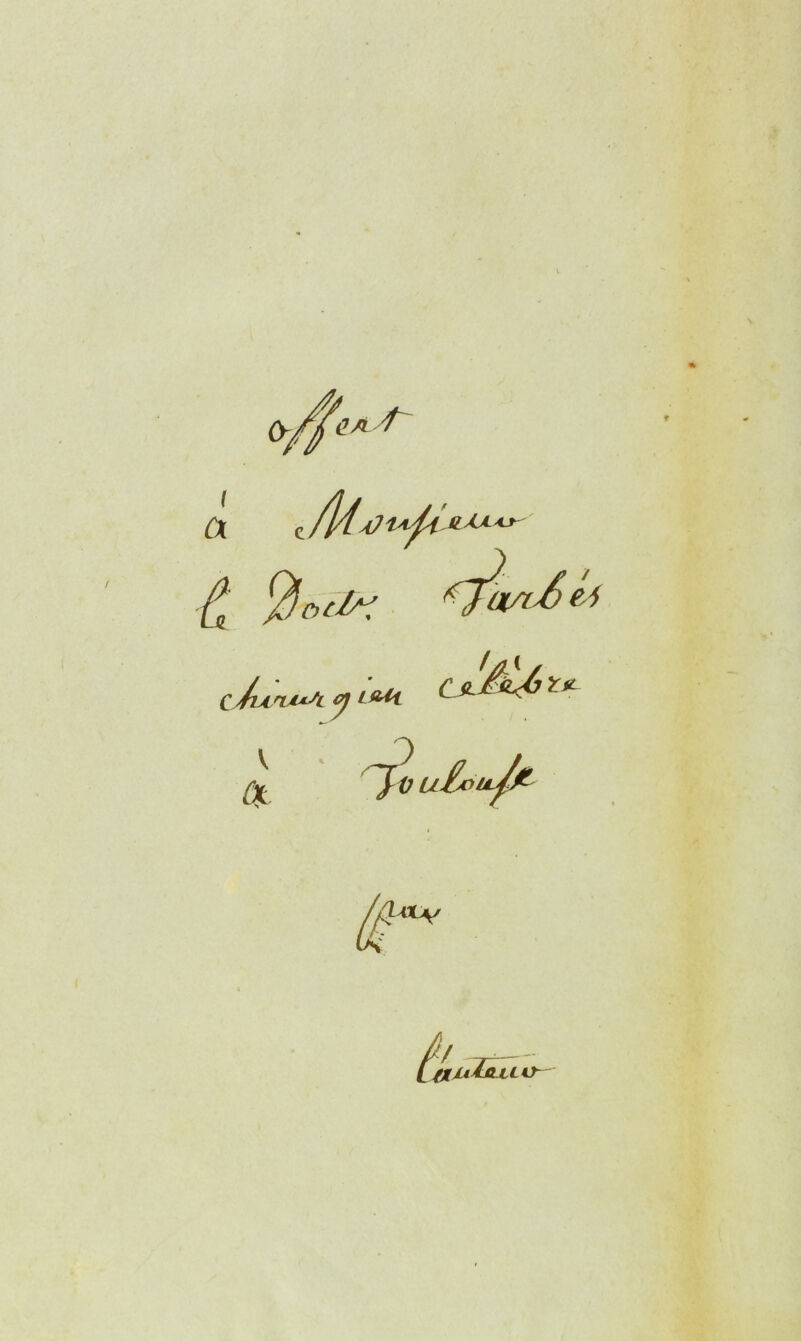 offert
à Monsieur
le Doctr. Tarbés
chirurgien célébre
à Toulouse
par
l'auteur